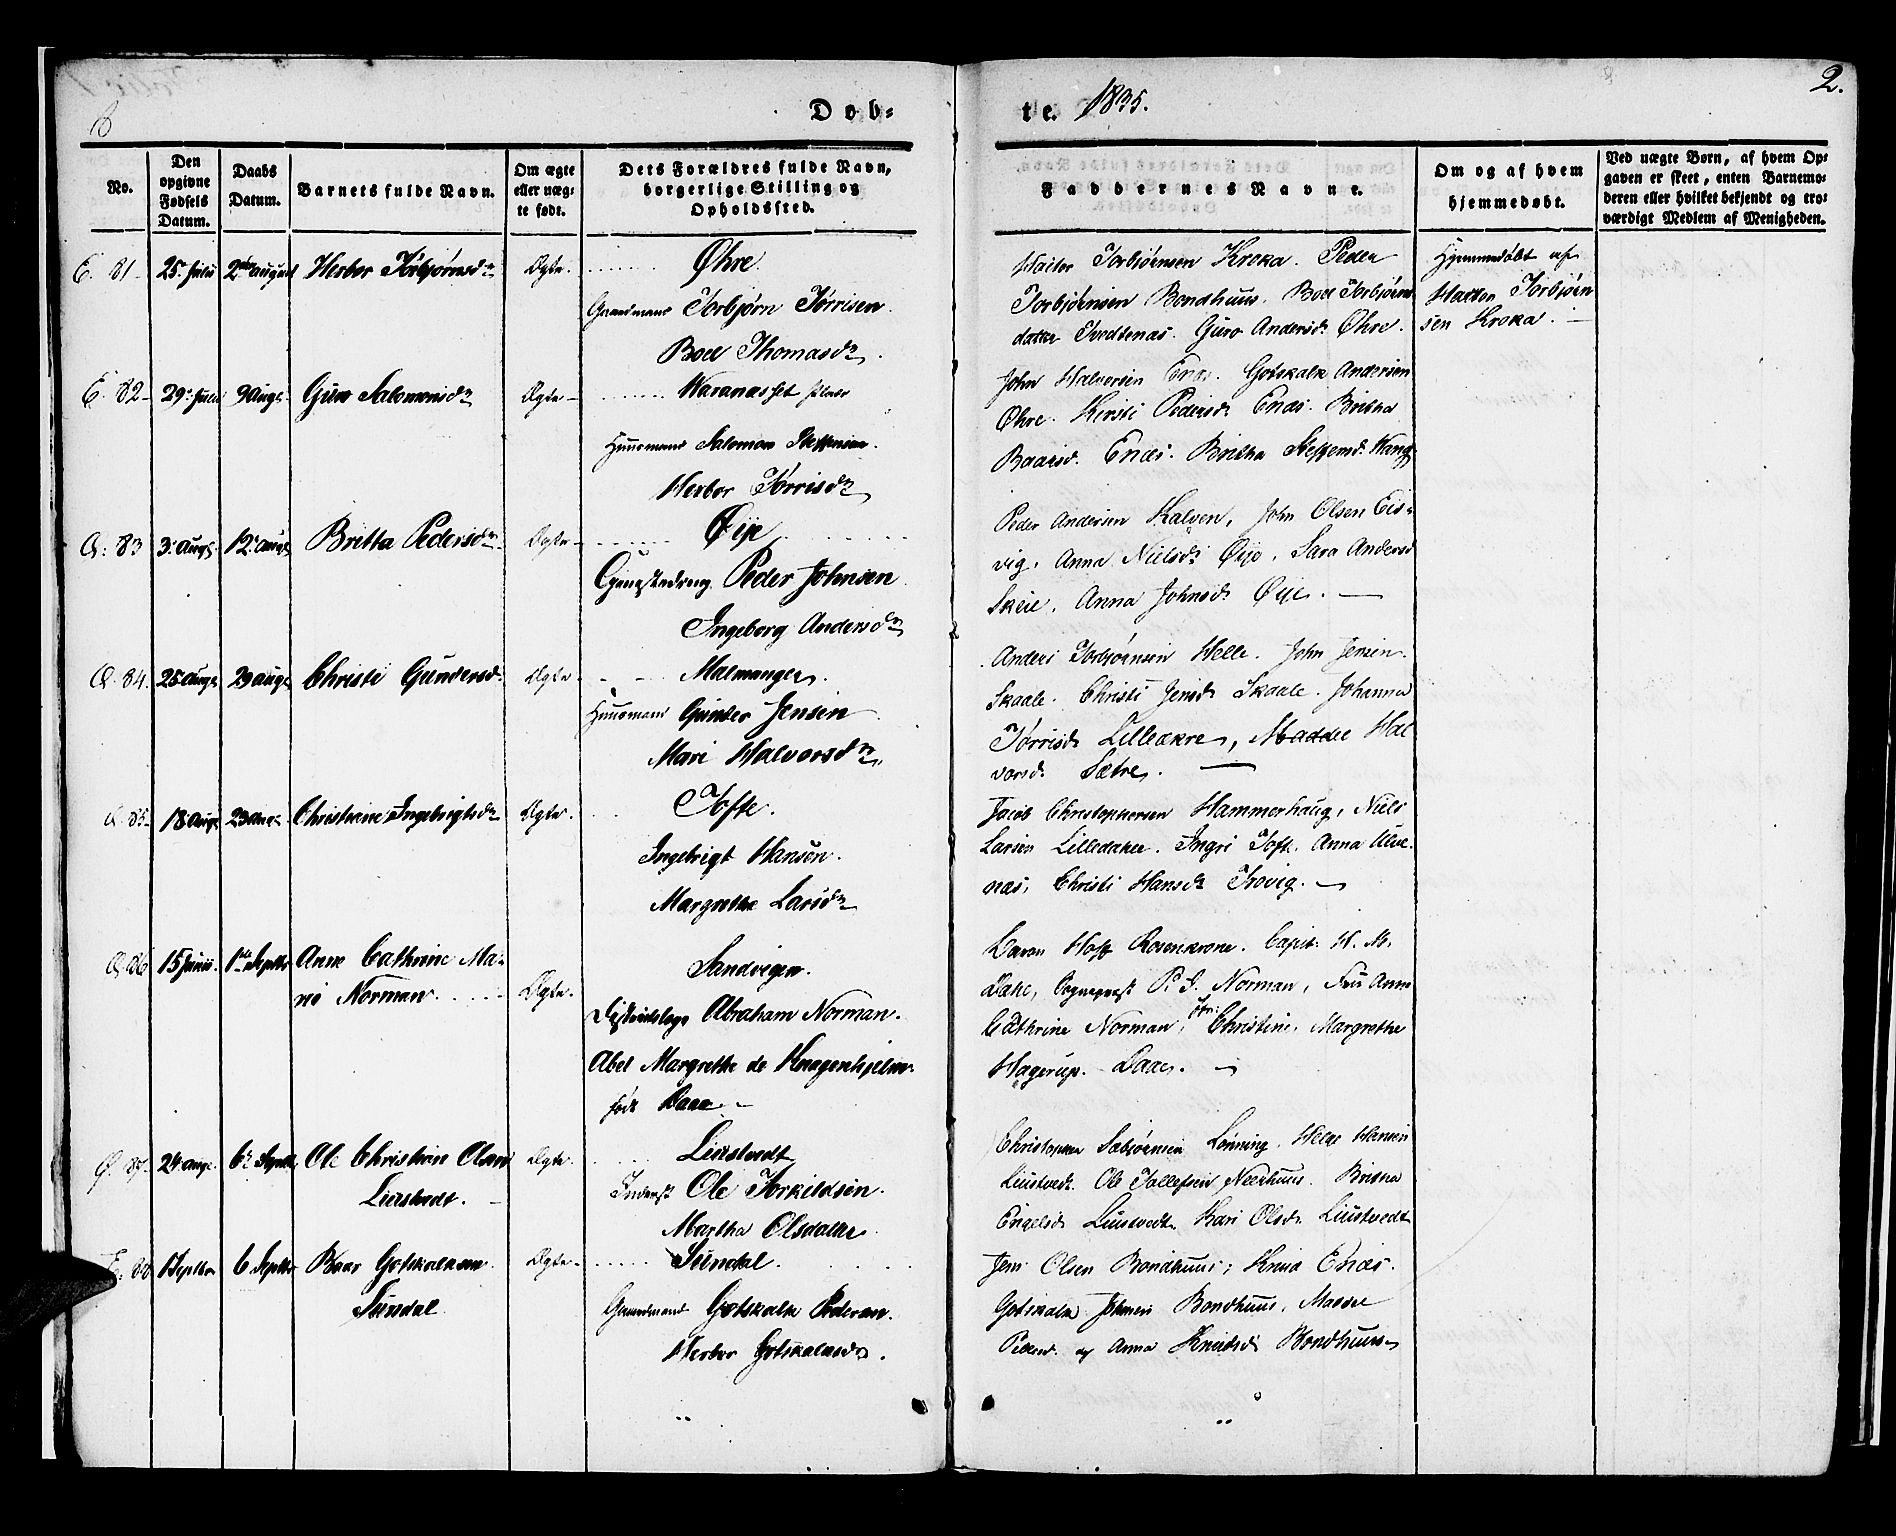 Døb-
te. 1835.
2.
No.
Den opgivne Fødsels Datum.
Daabs Datum.
Barnets fulde Navn.
Om ægte eller uæg-te født.
Dets Forældres fulde Navn, borgerlige Stilling og Opholdssted.
Faddernes Navne.
Om og af hvem hjemmedøbt.
Ved uægte Børn, af hvem Op-gaven er skeet, enten Barnemo-deren eller hvilket bekjendt og tro-værdigt Medlem af Menigheden.
E. 81 25 Julii 2den august Herbor Torbjørnsdr Ægte. Øhre.
Gaardmand Torbjørn Tørrisen.
Boel Thomasdr.
Torbjørnsen Kroka. Peder
Torbjørnsen Bondhuus. Boel Torbjørns
datter Guro Andersdr Øhre.
Hjemmedøbt af
Torbjørn
sen Kroka.
E. 82 29 Julii 9 Augt. Guro Salomonsdr Ægte
Huusmand Salomon Steffensen.
Herbor Tørrisdr
John Halvorsen Enæs. Gotskalk Andersen
Øhre. Kirsti Pedersdr Enæs. Britha
Baarsd. Enæs. Britha Steffensd.
Q: 83 3 Augt. 12 Augt. Britta Pedersdr Ægte Øye
Peder Johnsen
Ingeborg Andersdr
Peder Andersen John Olsen Eis-
vig, Anna Nielsdr Øye, Sara Andersd
Skeie, Anna Johnsdr Øye.
Q. 84. 25 Augt. 29 Augt. Christi Gundersd. Ægte Malmanger.
Huusmand Gunder Jensen
Mari Halvorsdr.
Anders Torbjørnsen Helle. John Jensen
Skaale. Christi Jensdr Skaale. Johanna
Tørrisdr Lilleakre, Madde Hal
vorsd. Sætre.
Q. 85. 18 Augt. 23 Augt. Christine Ingebrigtsdr Ægte. Tofte.
Ingebrigt Hansen.
Margrethe Larsdr
Jacob Christophersen Hammerhaug, Niels
Larsen Ingri Toft. Anna
næs, Christi Hansdr Trovig.
Q 86 15 Junii. 1ste Septbr Anne Cathrine Ma-
rie Norman Ægte. Sandvigen.
Districtslæge Abraham Norman.
Abel Margrethe de Knagenhjelm
født Daae.
Baron Hoff Rosenkrone. Capit: H. M.
Dahe, Sognepræst P. S. Norman, Fru Anne
Cathrine Norman, Jfr: Christine, Margrethe
Hagerup. Daae.
Q. 87. 24 Augt. 6te Septbr Ole Christian Olsen Ægte. Liustvedt
Liustvedt.
Inderst Ole Torkildsen.
Martha Olsdatter
Christopher Sabjørnsen Lønning, Helge Hansen
Liustvedt. Ole Tollefsen Neerhuus. Britha
Engelsdr Liustvedt. Kari Olsdr Liustvedt
E. 88 1 Septbr 6 Septbr Baar Gotskalksen Ægte Sundal.
Sundal
Gaardmand Gotskalk Pedersen.
Herbor Gotskalksdr.
Jens Olsen Bondhuus, Knud Enæs.
Gotskalk Johnsen Bondhuus, Madde
Pedersd. og Anna Knudsd. Bondhuus